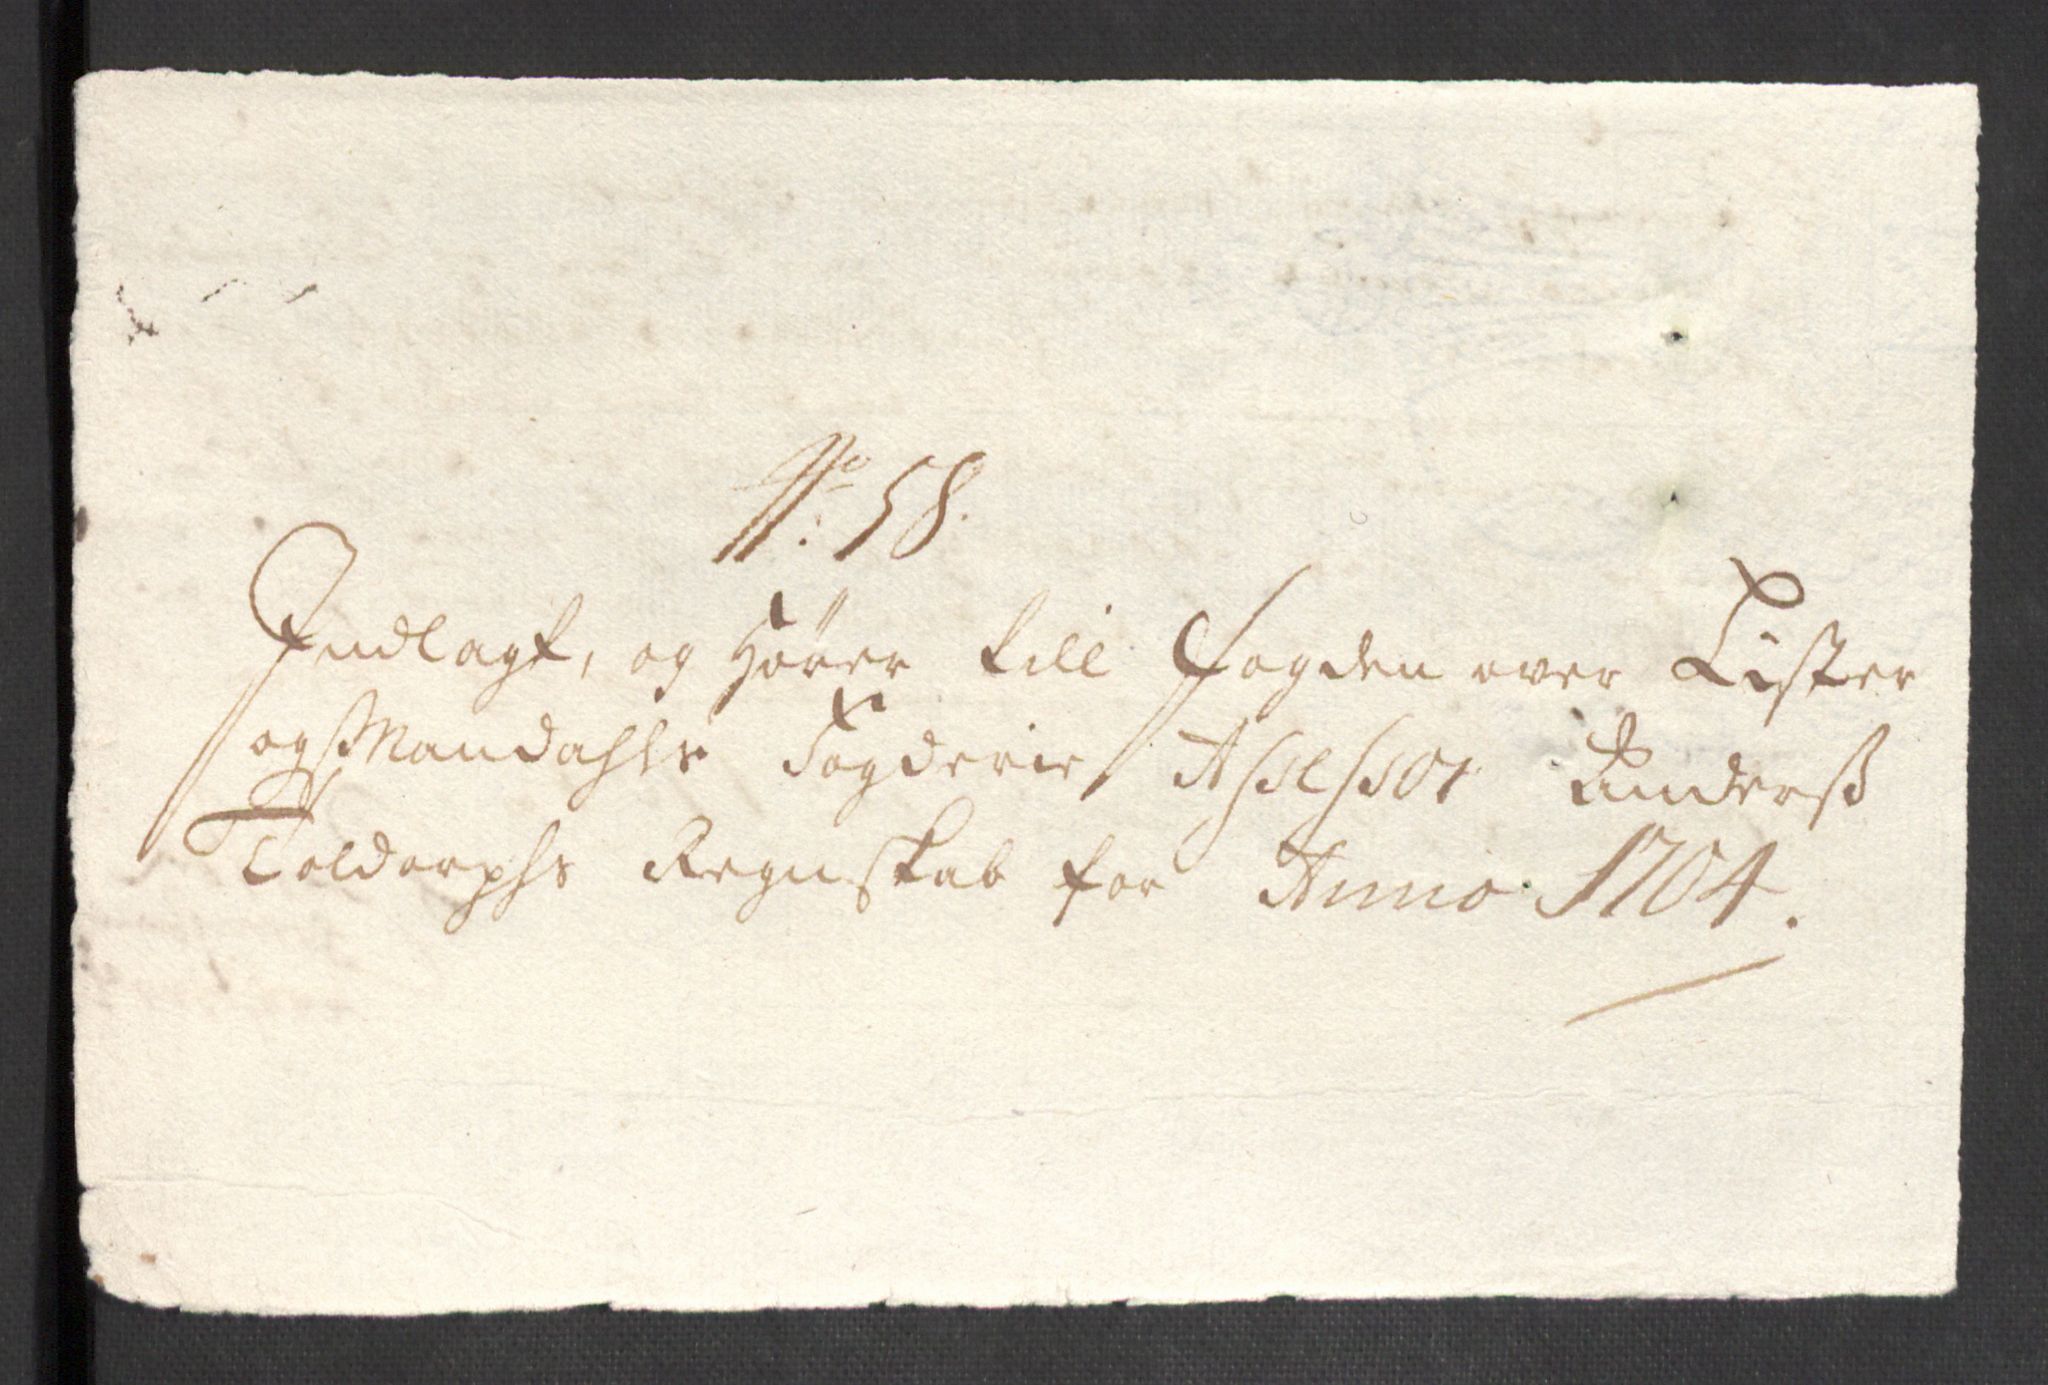 No: 58.
Indlagt, og Hörer till Fogden over Lister
og Mandahls Fogderie, Assessor Anderß
Toldorphs Regnskab for Anno 1704.